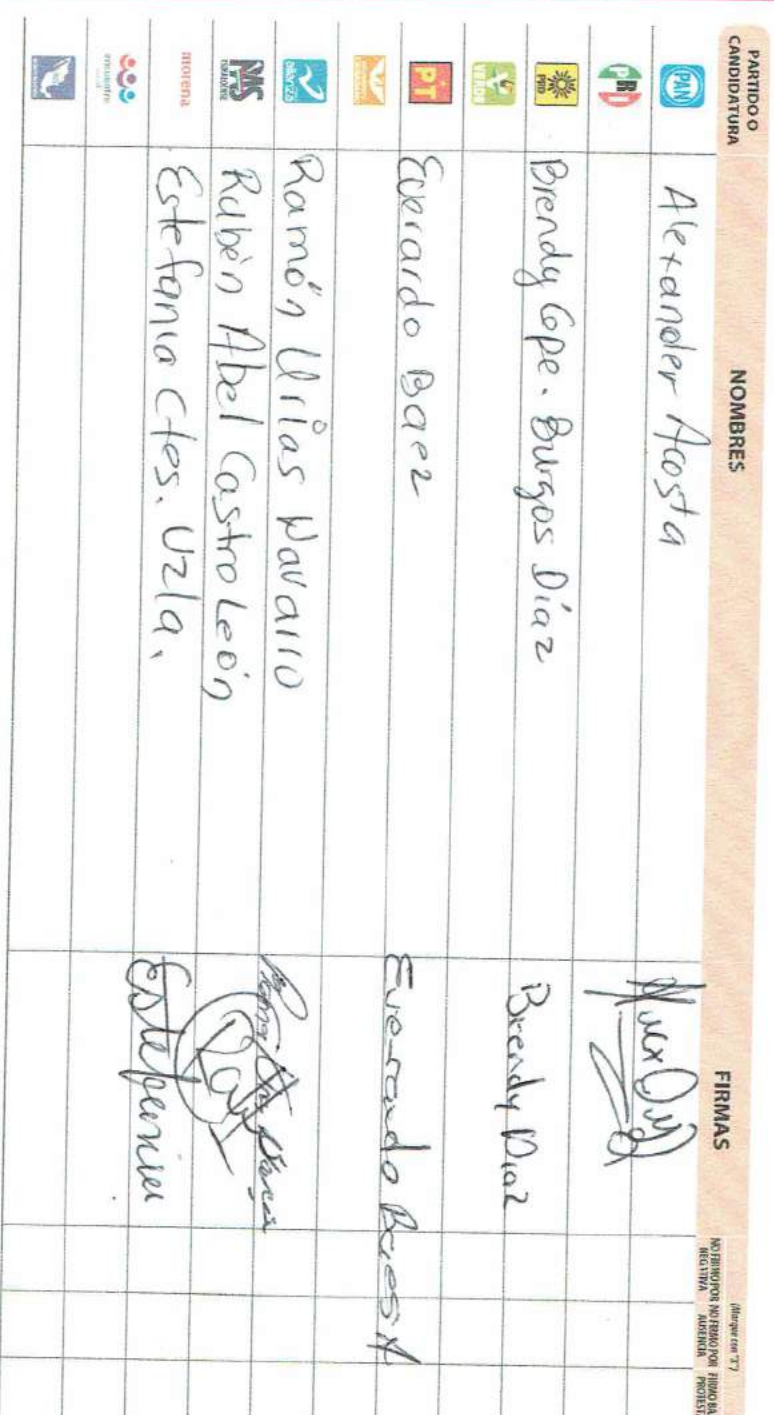 PARTIDO O CANDIDATURA NOMBRES FIRMAS (Marque con "X")
NO FIRMÓ POR NEGATIVA NO FIRMÓ POR AUSENCIA FIRMÓ BA PROTEST
PAN Alexander Acosta
PRI
PRD Brendy Gpe. Burgos Díaz Brendy Diaz
VERDE
PT Everardo Baez Everardo Baes A
alianza Ramón Urías Navarro
PAS Rubén Abel Castro León
morena Estefania Ctes. Uzla. Estefania
encuentro